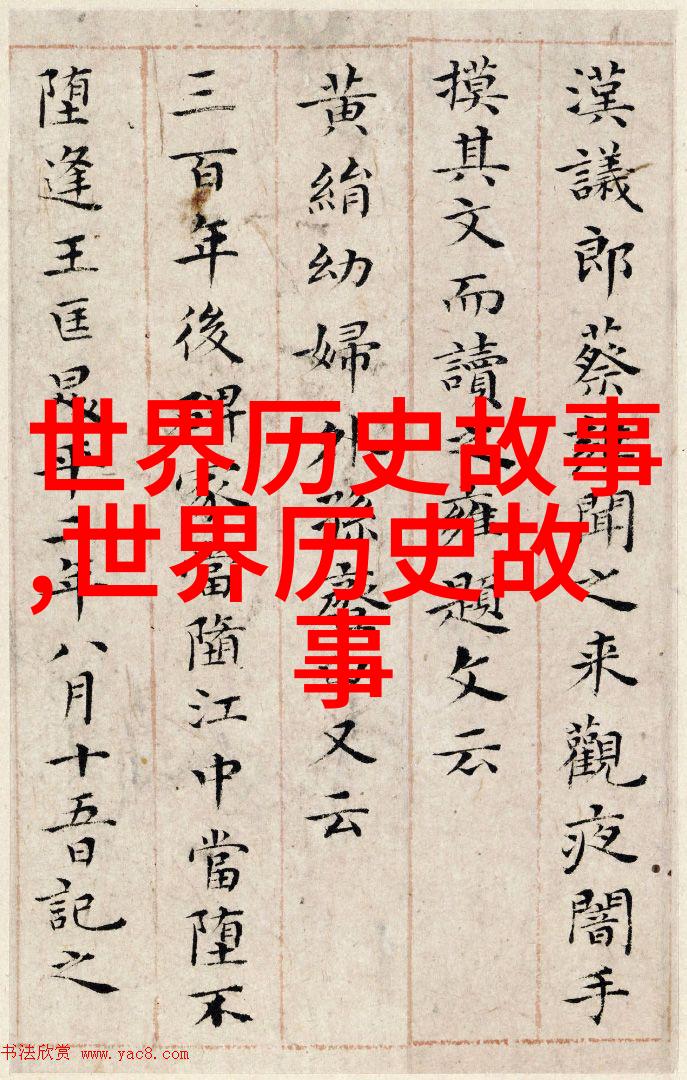 漢議郎蔡聞之来觀夜闇手
摸其文而讀之雍題文云
黃絹幼婦外孫又云
三百年後碑冢當墮江中當堕不
堕逢王匡二年八月十五日記之
世界历史故事
,世界历史故
事
书法欣赏 www.yac8.com